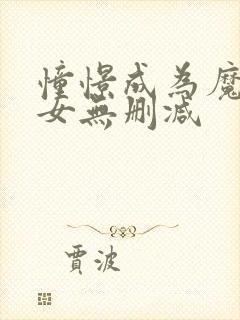 憧憬成為魔
女無刪減
賈波